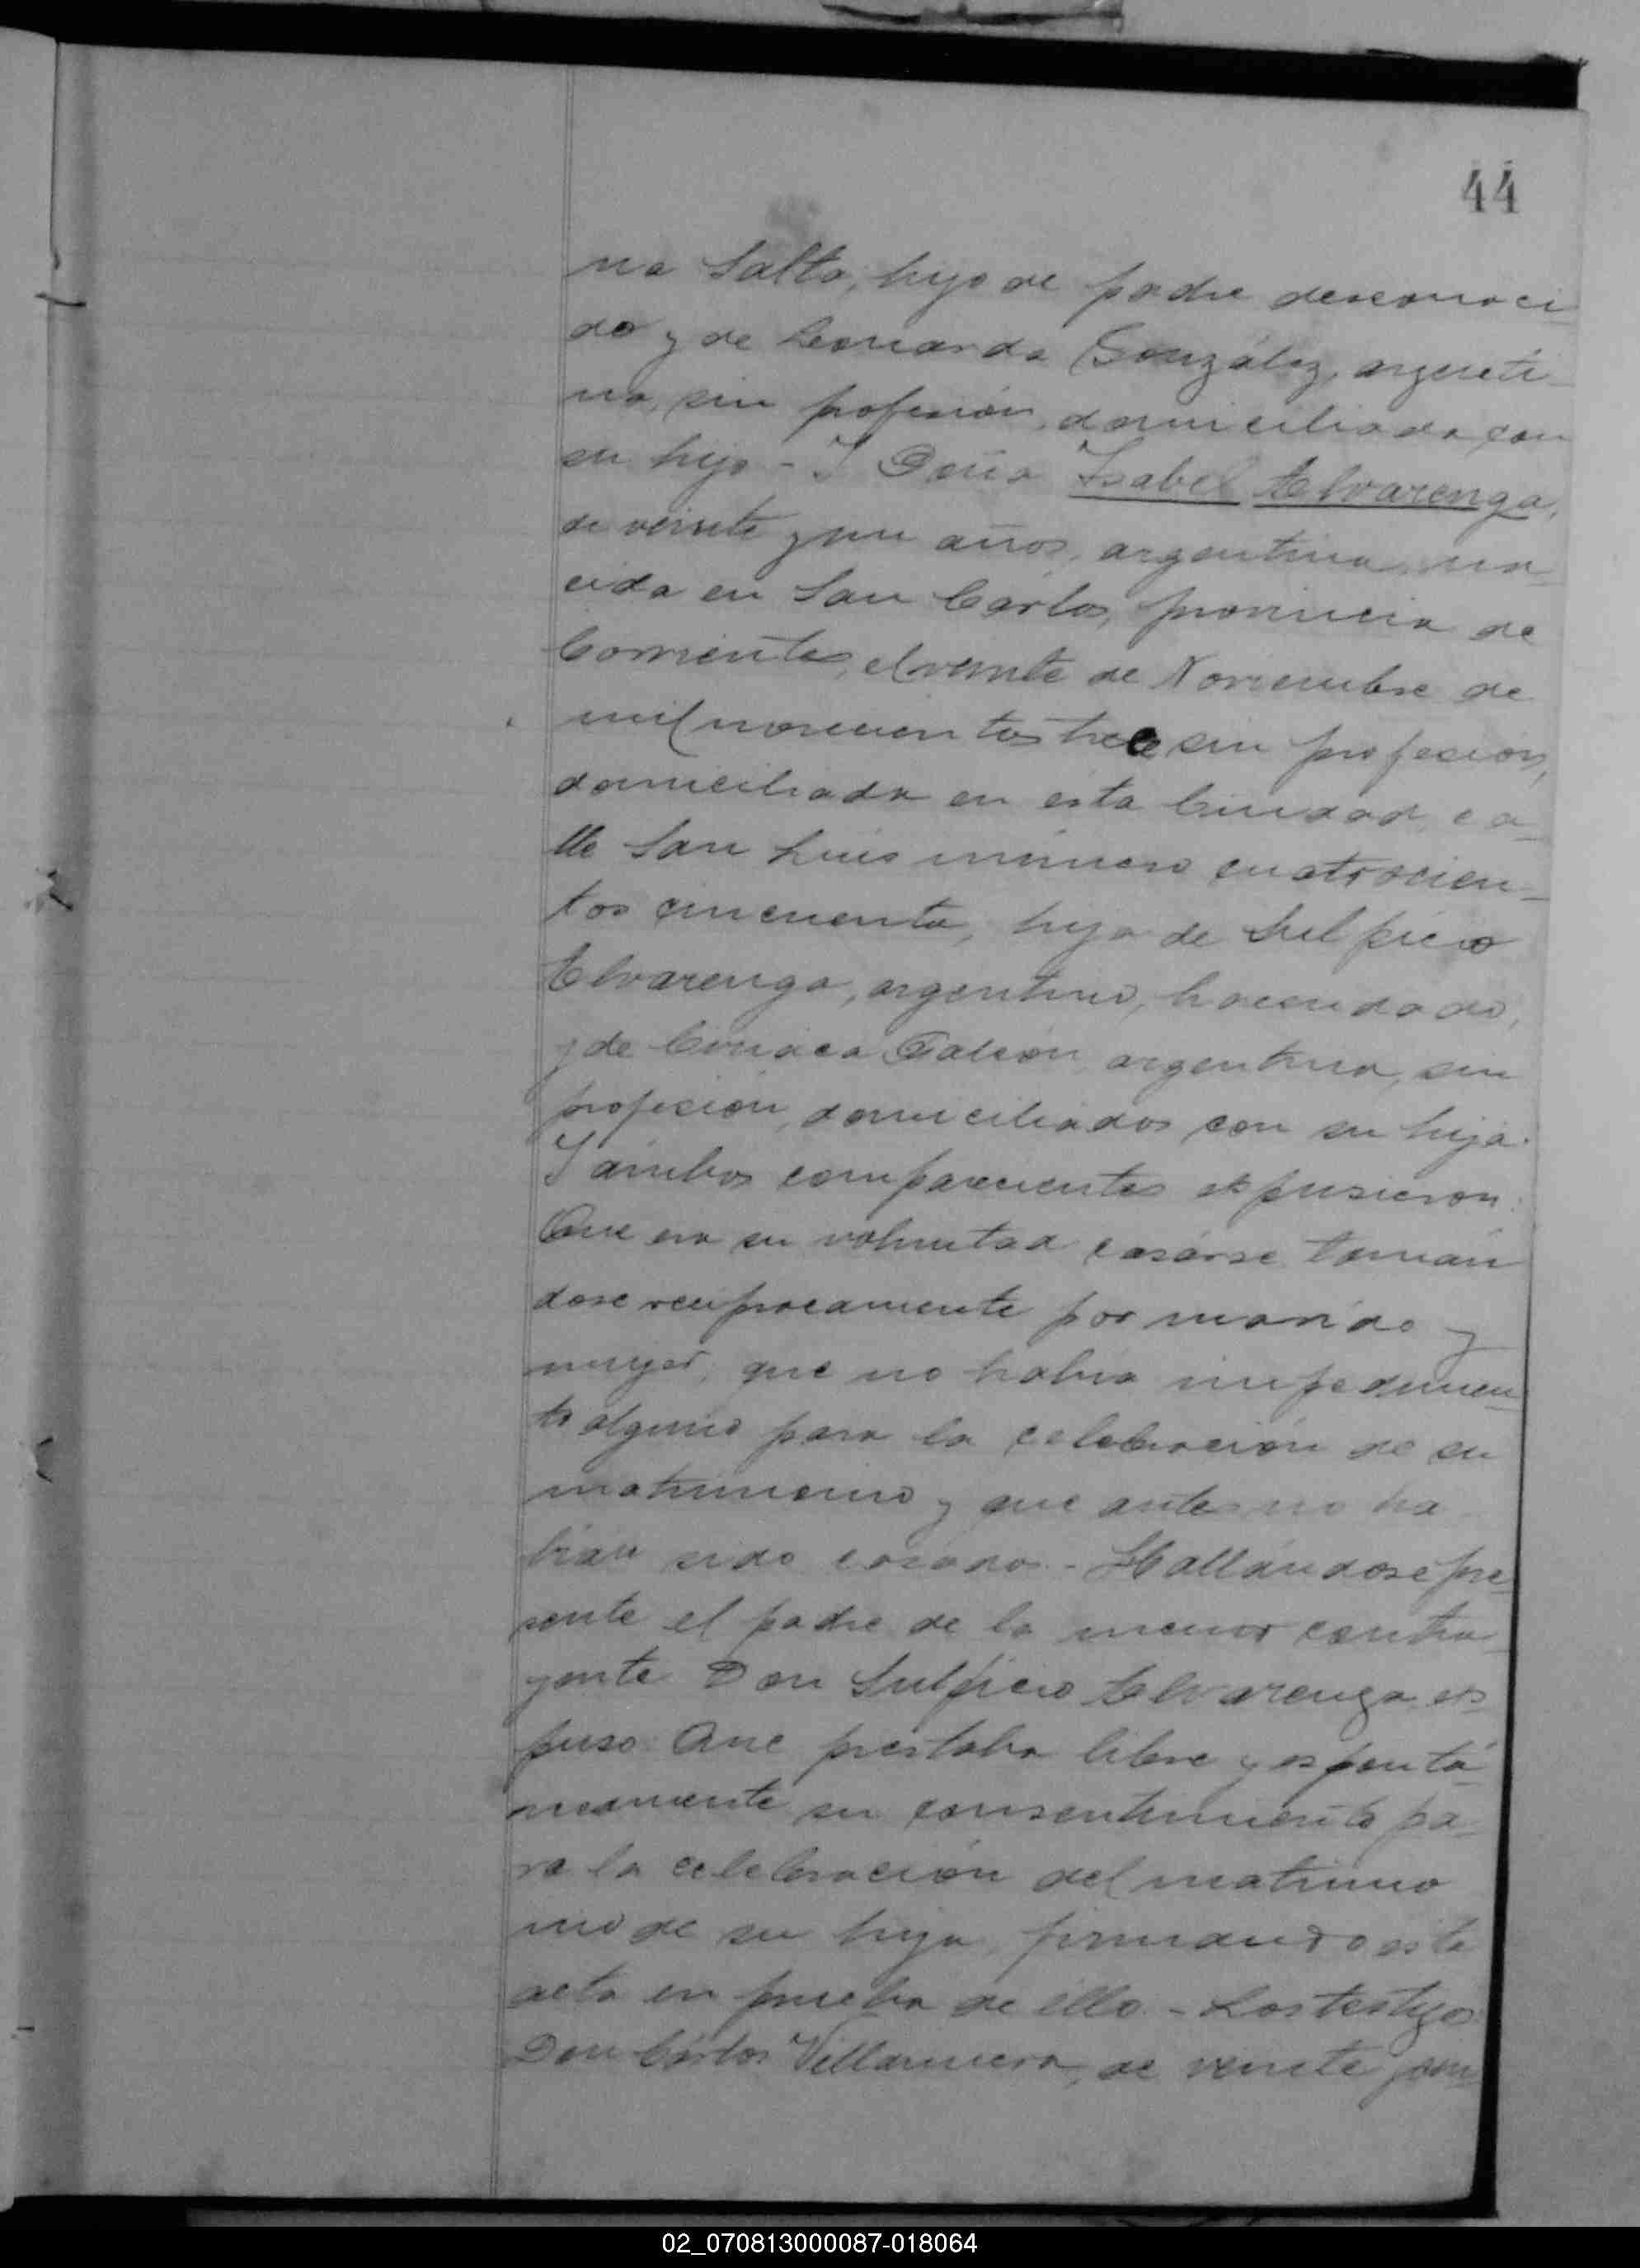 44
na Salto, hijo de padre desconoci
do y de Leonarda González, argenti-
na, sin profesión, domiciliada con
su hijo - Y Doña Isabel Alvarenga,
de veinte y un años, argentina, na-
cida en San Cárlos, provincia de
Corrientes, el veinte de Noviembre de
mil novecientos trece sin profesión,
domiciliada en ésta Ciudad, ca-
lle San Luis número cuatrocien-
tos cincuenta, hija de Sulpicio
Alvarenga, argentino, hacendado,
y de Ciriaca Falcón argentina, sin
profesión, domiciliados con su hija.
Y ámbos comparecientes espusieron:
Que era su voluntad casárse tomán
dose recíprocamente por marido y
mujer, que no había impedimen-
to alguno para la celebración de su
matrimonio y que antes no ha
bían sido casados. - Hallándose pre-
sente el padre de la menor contra
yente Don Sulpicio Alvarenga es-
puso: Que prestaba libre y espontá-
neamente su consentimiento pa-
ra la celebración del matrimo
nio de su hija, firmando esta
acta en prueba de ello. - Los testigos:
Don Cárlos Villanueva, de veinte y un
02_070813000087-018064